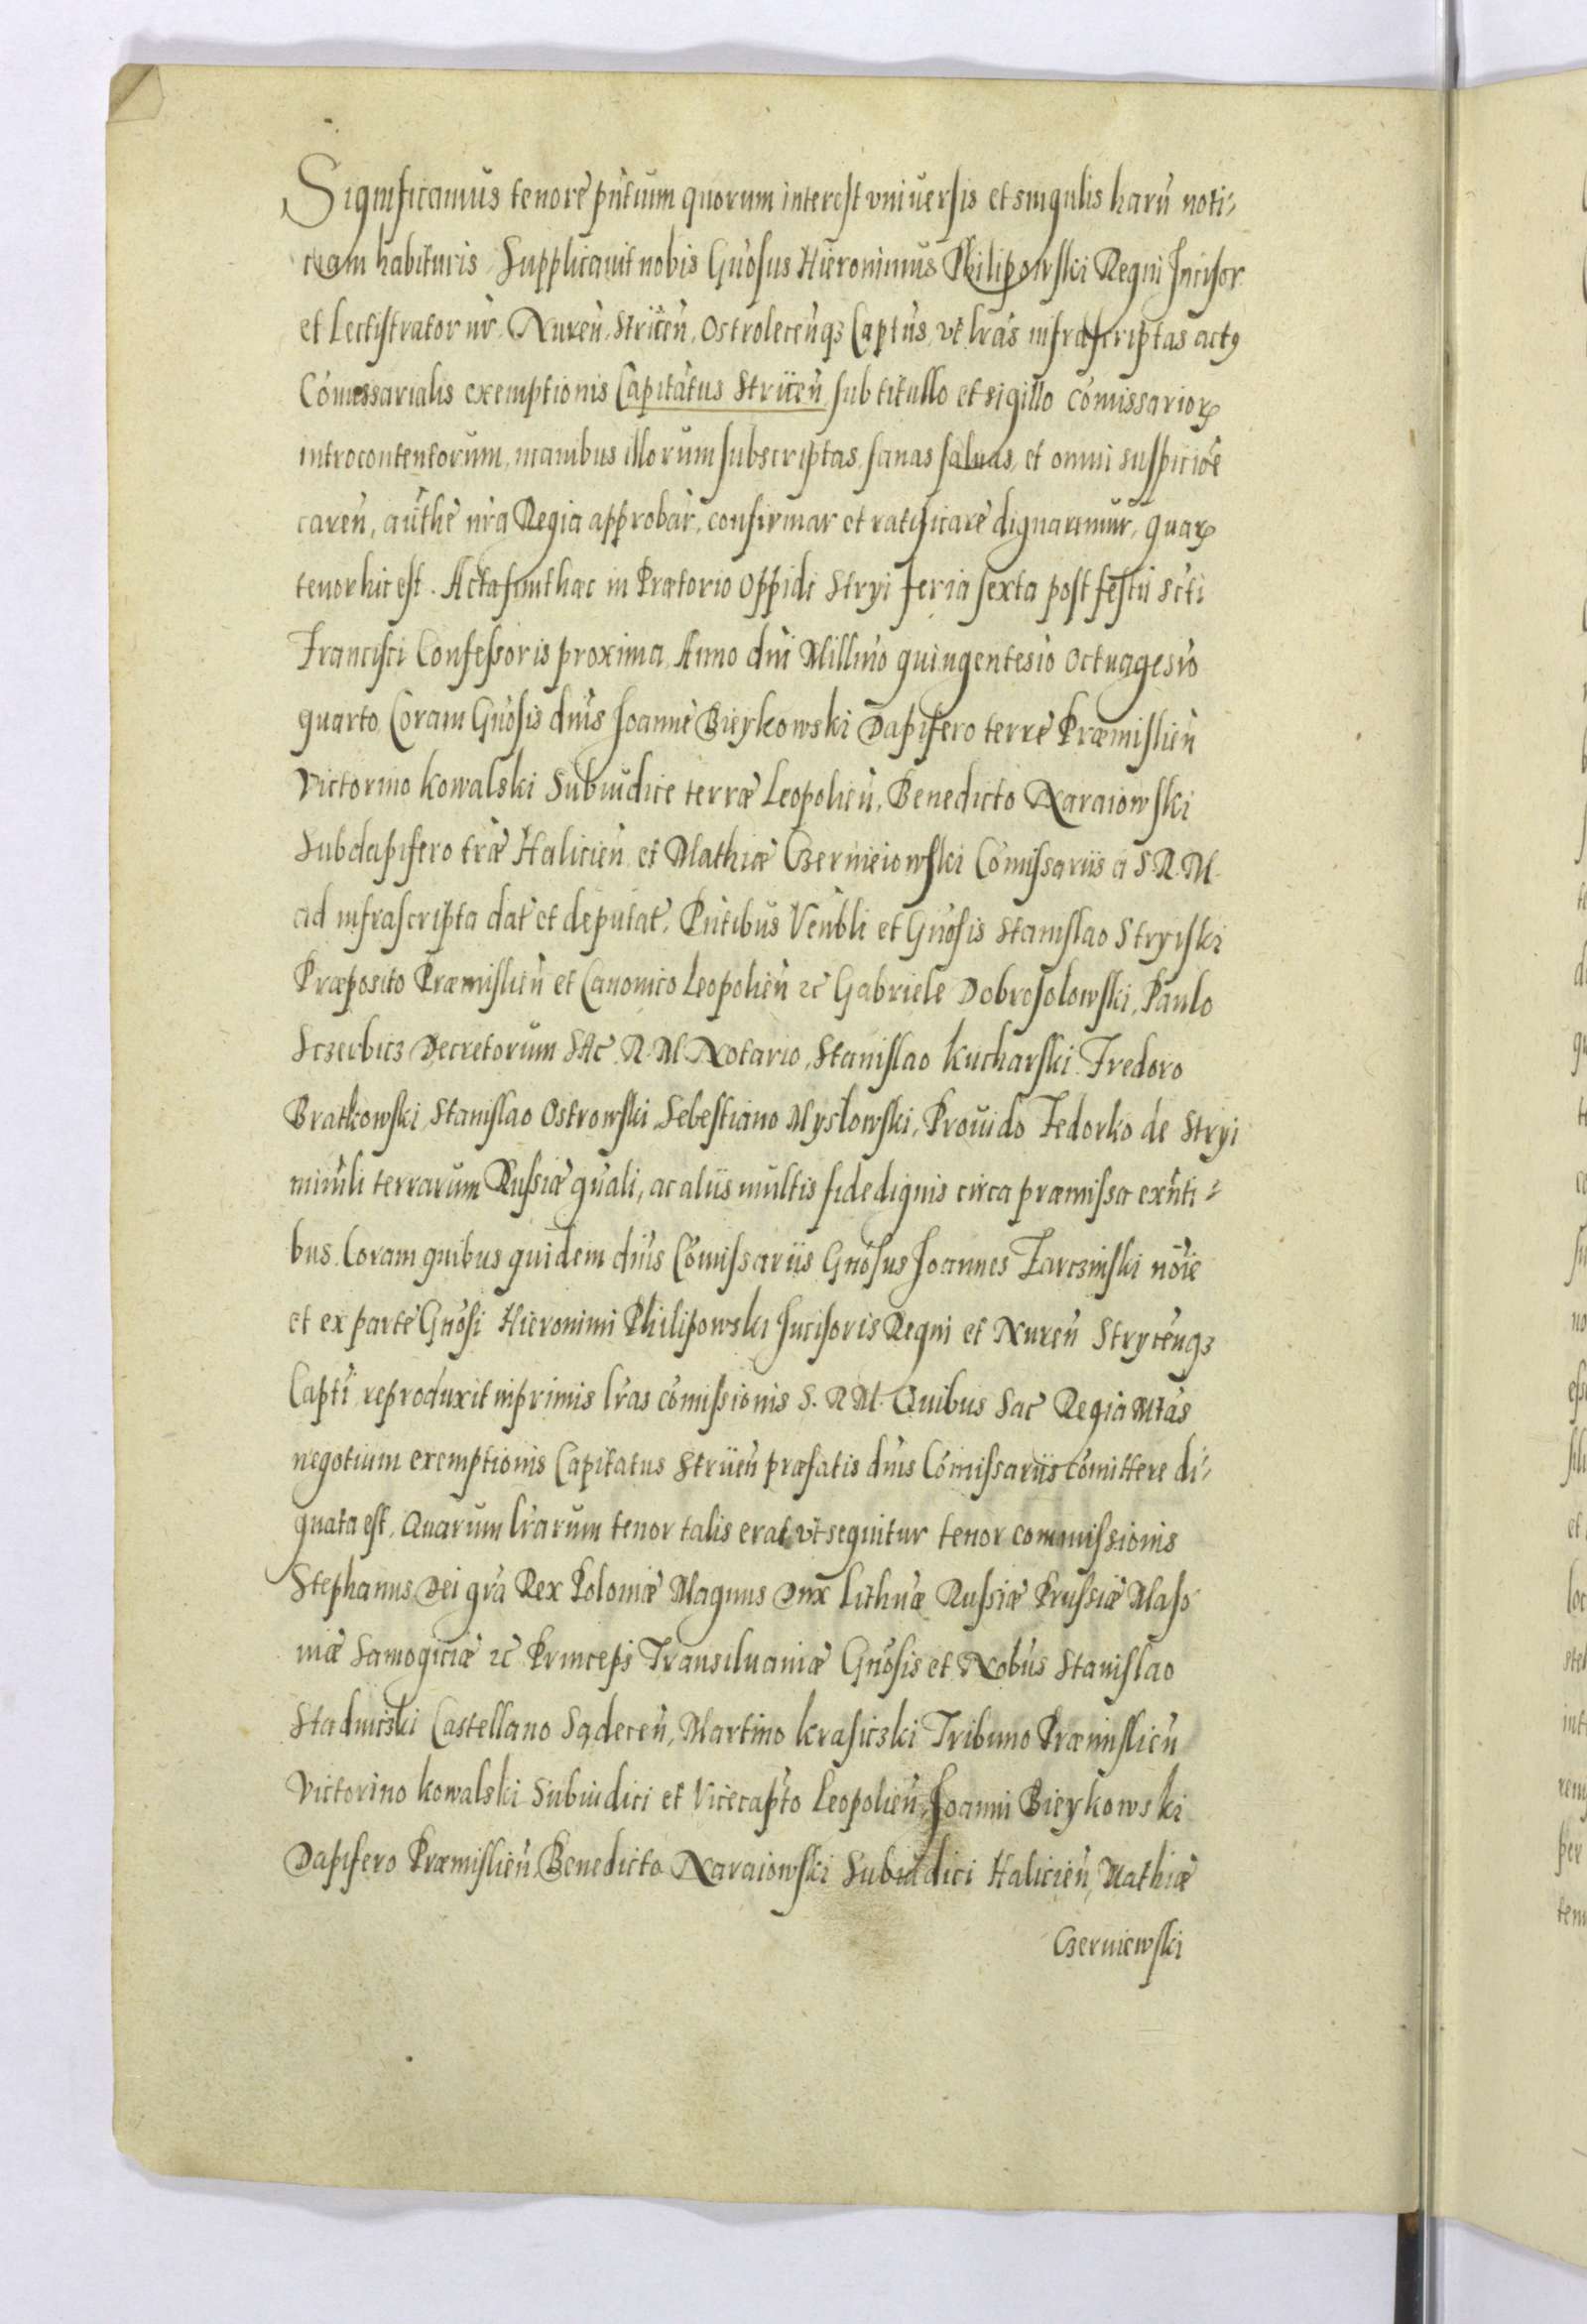 Significamus tenore pñtium quorum interest vniuersis et singulis harũ noti-
ciam habituris Supplicauit nobis Gñosus Hieronimus Philipowski Regni Incisor
et Lectistrator nr̃ Nureñ, Strÿceñ, Ostroleceñqз Captũs, vt lrãs infrascriptas actꝯ
Cõmissarialis exemptionis Capitãtus Strÿceñ sub titullo et sigillo cõmissarioꝝ
introcontentorum, manibus illorum subscriptas, sanas saluas, et omni suspiciõe
careñ, autħe nrã Regia approbar̃, confirmar et ratificare dignaremur, quaꝝ
tenor hic est. Acta sunt haec in Prætorio oppidi Stryi feria sexta post festũ Scti
Francisci Confessoris proxima Anno dñi Millmo quingentesio Octuagesio
quarto Coram Gñosis dñis Joanne Bieykowski Dapifero terre Præmislieñ
Victorino Kowalski Subiudice terræ Leopolieñ, Benedicto Naraiowski
Subdapifero træ Halicieñ et Mathiæ Czernieiowski Cõmissariis a S. R. M.
ad infrascripta dat̃ et deputat̃, Pñtibus Veñbli et Gñosis Stanislao Stryiski
Præposito Præmislieñ et Canonico Leopolieñ ꝛc Gabriele Dobrosolowski, Paulo
Sczerbicz Decretorum SAc R. M. Notario, Stanislao Kucharski Fredoro
Bratkowski, Stanislao Ostrowski Sebestiano Mysłowski, Prouido Fedorko de Stryi
minĩli terrarum Russiæ gñali, ac aliis multis fidedignis circa præmissa exñti-
bus. Coram quibus quidem dñis Cõmissariis Gñosus Joannes Tarczinski nõie
et ex parte Gñosi Hieronimi Philipowski Incisoris Regni et Nureñ Stryceñqз
Capti reproduxit inprimis lrãs cõmissionis S. R. M. Quibus Sac Regia Mtãs
negotium exemptionis Capitatus Strÿeñ præfatis dñis Cõmissariis cõmittere di-
gnata est, Quarum lrãrum tenor talis erat vt sequitur tenor commissionis
Stephanus Dei grã Rex Poloniæ Magnus Dux Lithuæ Russiæ Prussiæ Maso
uiæ Samogiciæ ꝛc Princeps Transiluaniæ Gñosis et Nobus Stanislao
Stadniczki Castellano Sądeceñ, Martino Krasiczki Tribuno Præmislieñ
Victorino Kowalski Subiudici et Vicecapto Leopolieñ, Joanni Bieykowski
Dapifero Præmislieñ, Benedicto Naraiowski Subiudici Halicieñ, Mathiæ
Czerniewski